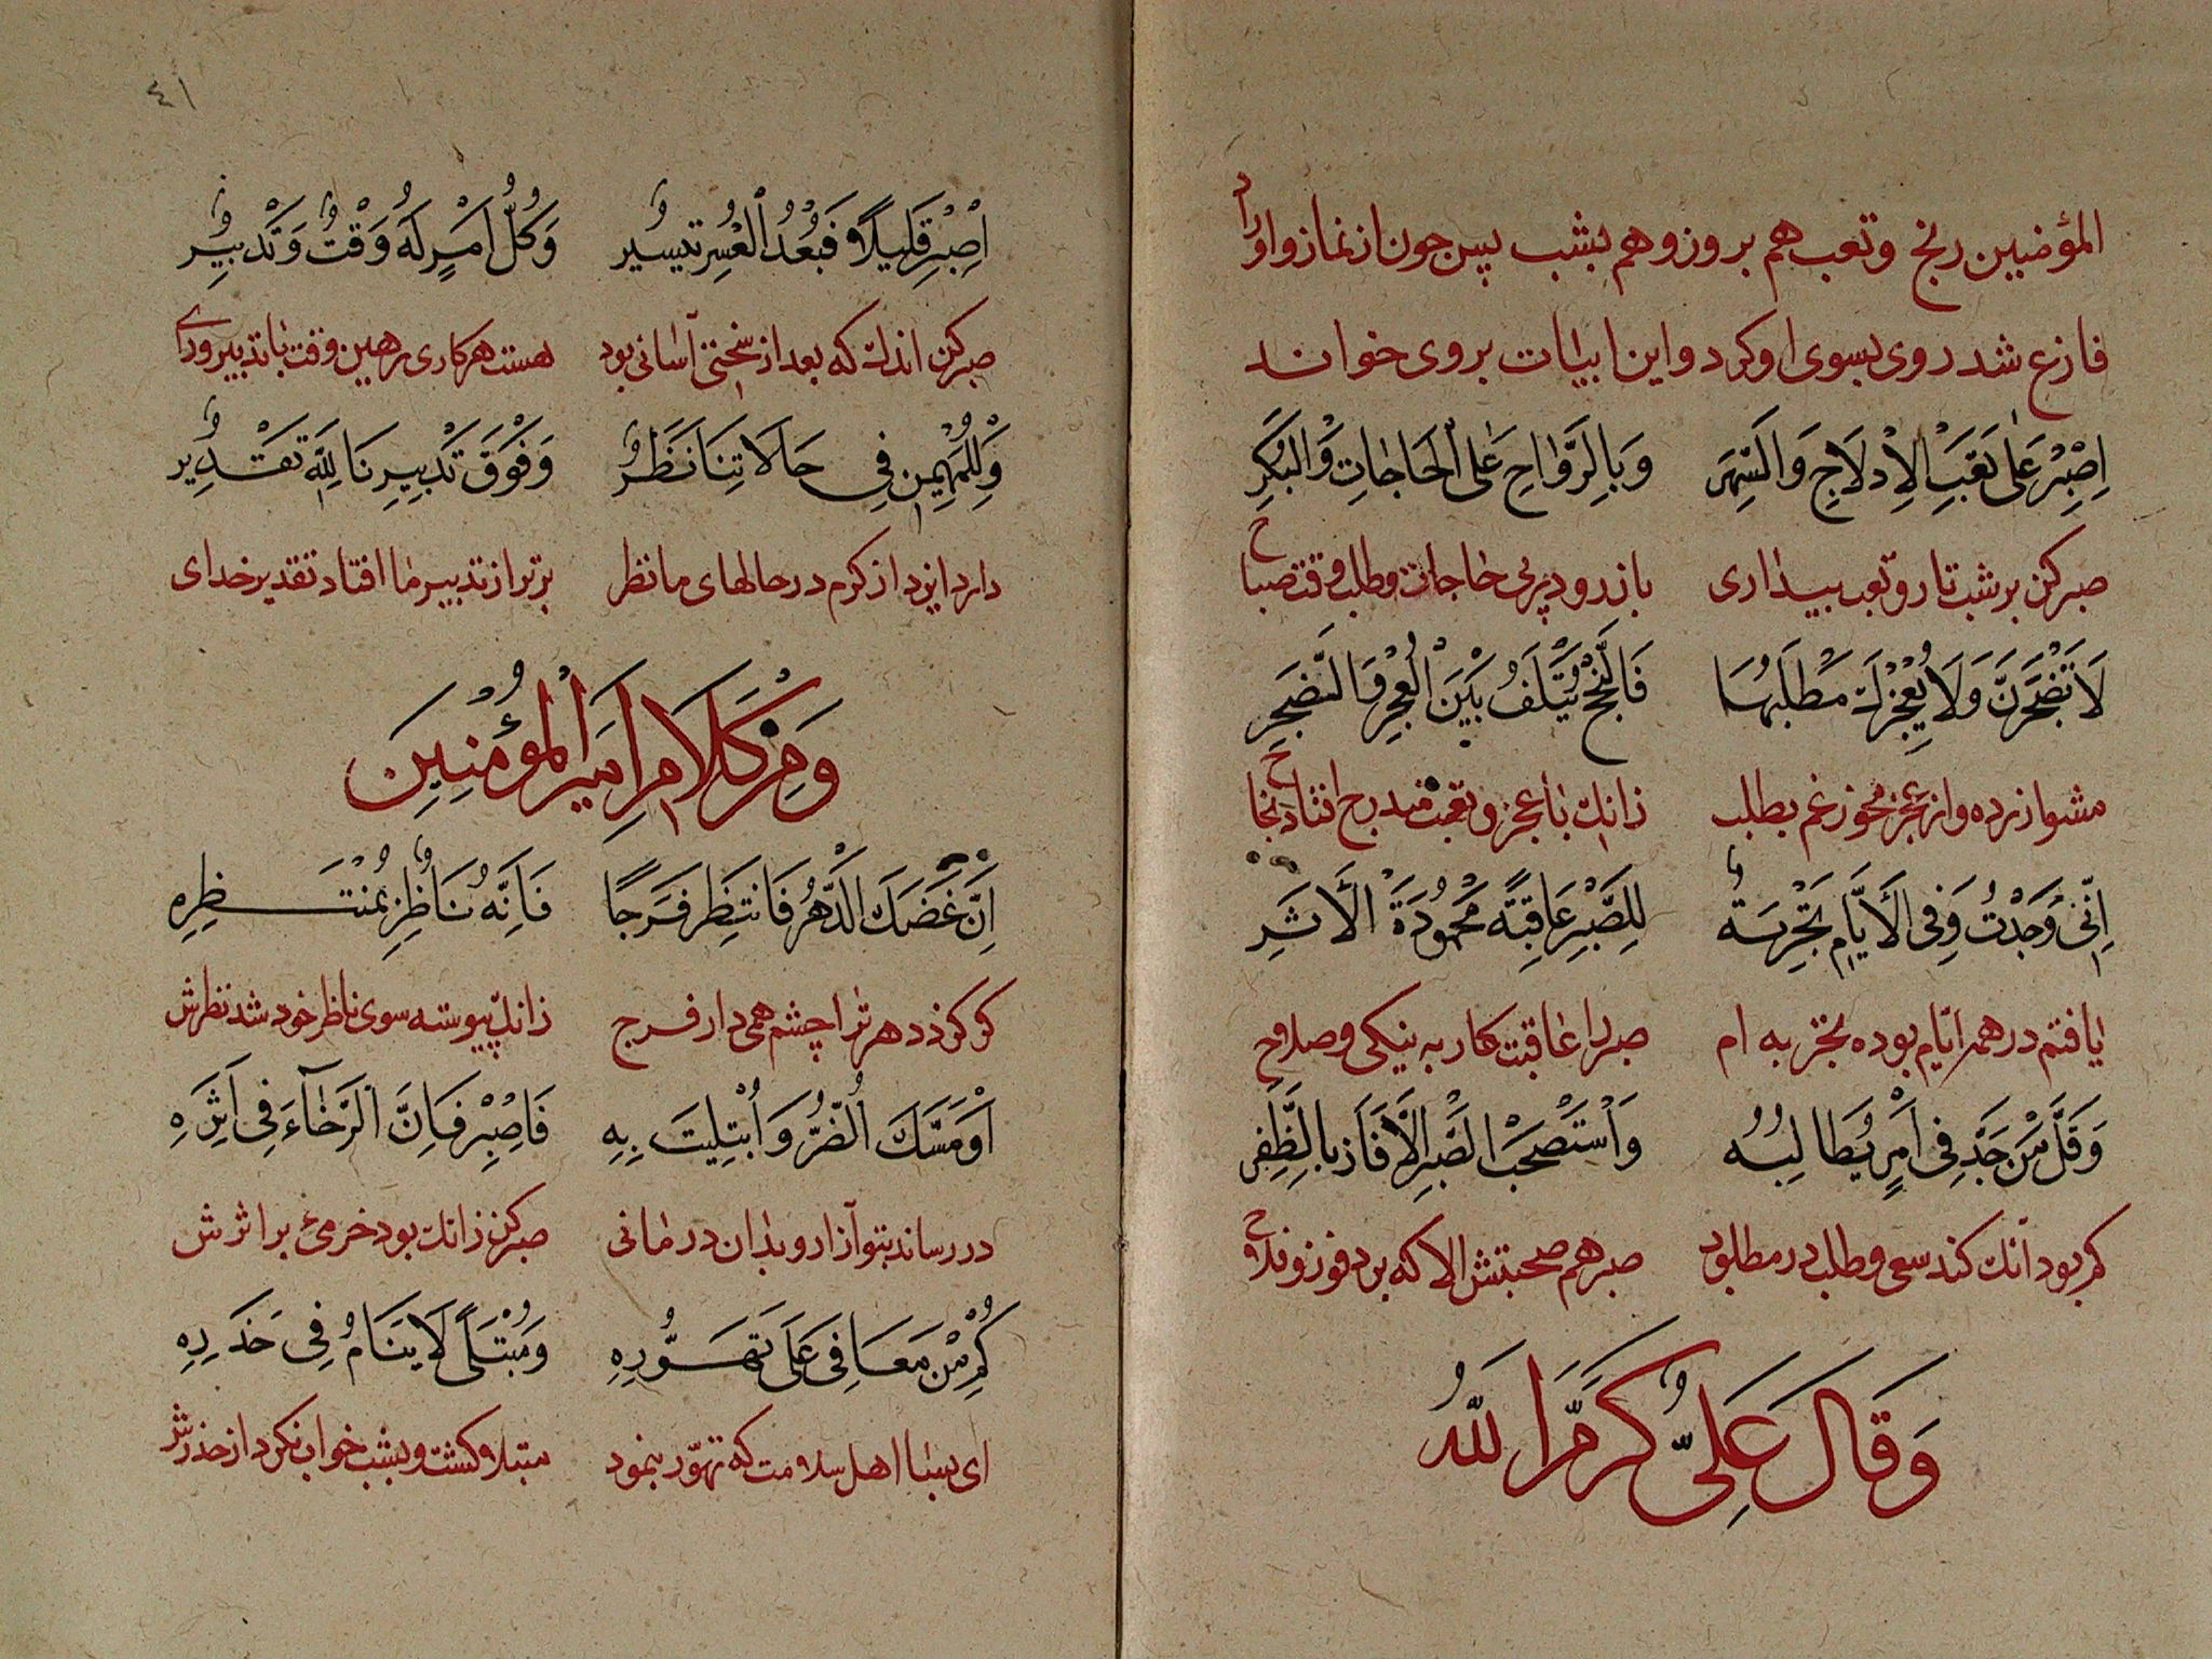 المؤمنین رنج وتعب هم بروز وهم بشب پس چون از نماز واوراد
فارغ شد روی بسوی او کرد و این ابیات بروی خواند
اِصْبِرْ عَلٰی تَعَبِ الْاِدْلَاجِ وَالسَّهَرِ وَبِالرَّوَاحِ عَلَی الْحَاجَاتِ وَالْبُكَرِ
صبر کن بر شب تار و تعب بیداری باز رو در پی حاجات وطلب وقت صباح
لَا تَضْجَرَنَّ وَلَا يُعْجِزْكَ مَطْلَبُهَا فَالنُّجْحُ يَتْلَفُ بَيْنَ الْعَجْزِ وَالضَّجَرِ
مشو آزرده واز عجز مخور غم بطلب زانك با عجز و تعب
اِنِّی وَجَدْتُ وَفِی الْاَيَّامِ تَجْرِبَةٌ لِلصَّبْرِ عَاقِبَةً مَحْمُودَةَ الْاَثَرِ
یافتم در همه ایام بوده تجربه ام صبر را عاقبت کار به نیکی وصلاح
وَقَلَّ مَنْ جَدَّ فِی اَمْرٍ يُطَالِبُهُ وَاسْتَصْحَبَ الصَّبْرَ اِلَّا فَازَ بِالظَّفَرِ
کم بود آنك کند سعی وطلب در مطلوب صبر هم صحبتش الا که برد فوز وفلاح
وَقَالَ عَلِیٌّ كَرَّمَ اللهُ
٤١
اِصْبِرْ قَلِيلًا فَبَعْدَ الْعُسْرِ تَيْسِيرٌ وَكُلُّ اَمْرٍ لَهُ وَقْتٌ وَتَدْبِيرٌ
صبر کن اندك که بعد از سختی آسانی بود هست هر کاری رهین وقت با تدبیر ورای
وَلِلْمُهَيْمِنِ فِی حَالَاتِنَا نَظَرٌ وَفَوْقَ تَدْبِيرِنَا لِلّٰهِ تَقْدِيرٌ
دارد ایزد از کرم در حالهای ما نظر برتر از تدبیر ما افتاد تقدیر خدای
وَمِنْ كَلَامِ اَمِيرِ الْمُؤْمِنِينَ
اِنْ عَضَّكَ الدَّهْرُ فَانْتَظِرْ فَرَجًا فَاِنَّهُ نَاظِرٌ بِمُنْتَظِرِهِ
گر گزد دهر ترا چشم همی دار فرج زانك پیوسته سوی ناظر خود شد نظرش
اَوْ مَسَّكَ الضُّرُّ وَابْتُلِيتَ بِهِ فَاصْبِرْ فَاِنَّ الرَّخَآءَ فِی اَثَرِهِ
در رساند بتو آزار و بدان درمانی صبر کن زانك بود خرمئ بر اثرش
كَمْ مِنْ مُعَافًی عَلَی تَهَوُّرِهِ وَمُبْتَلًی لَا يَنَامُ فِی حَذَرِهِ
ای بسا اهل سلامت که تهوّر بنمود مبتلا کشت و بشب خواب نکرد از حذرش